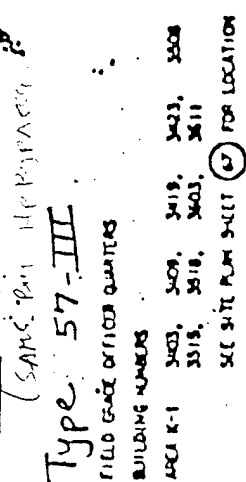 Type 57-III
FIELD GRADE OFFICER QUARTERS
BUILDING NUMBERS
AREA K-1 3403, 3409, 3419, 3423, 3508
3515, 3518, 3603, 3611
SEE SITE PLAN SHEET 67 FOR LOCATION